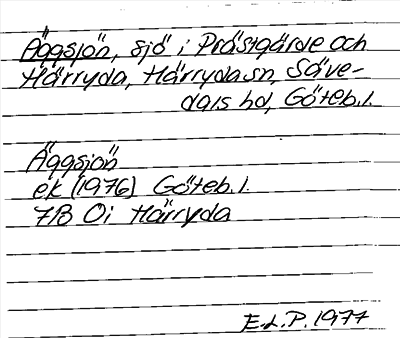 Äggsjön, sjö i Prästgårde och
Härryda, Härryda sn, Säve-
dals hd, Göteb. l.
Äggsjön
ek (1976) Göteb. l.
7B 0i Härryda
E.L.P. 1977